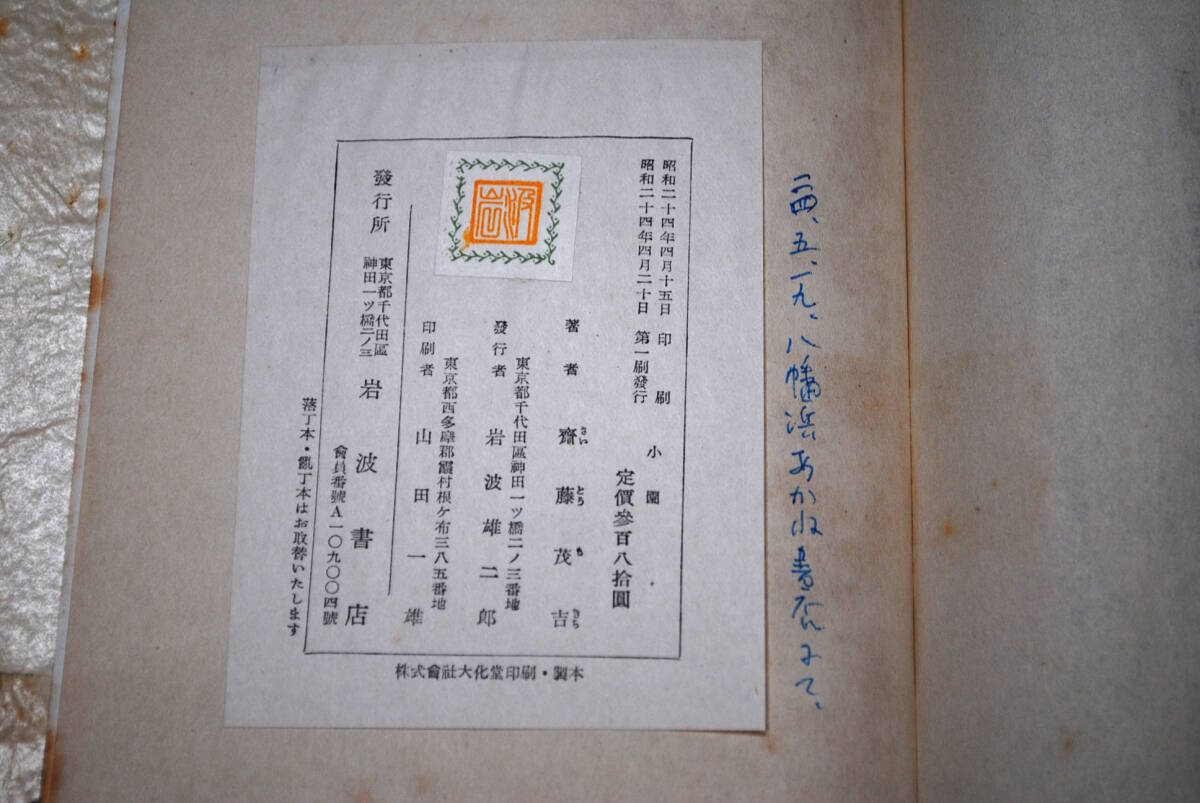 二四、五、一九、八幡浜あかね書店にて、
昭和二十四年四月十五日 印刷
昭和二十四年四月二十日 第一刷發行
小園
定價參百八拾圓
著者 齋藤茂吉
さいとうもきち
東京都千代田區神田一ツ橋二ノ三番地
發行者 岩波雄二郎
東京都西多摩郡霞村根ケ布三八五番地
印刷者 山田一雄
發行所
東京都千代田區
神田一ツ橋二ノ三
岩波書店
會員番號A一〇九〇〇四號
落丁本・亂丁本はお取替いたします
株式會社大化堂印刷・製本